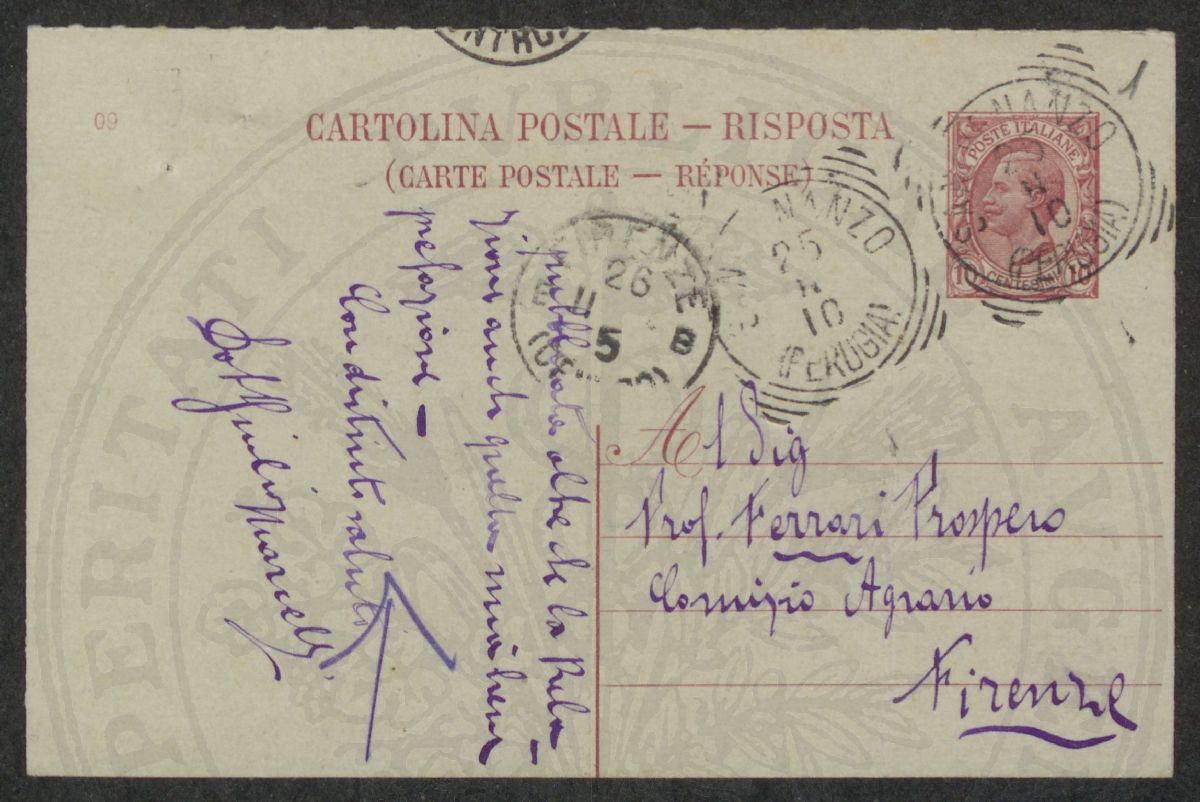 09
CARTOLINA POSTALE — RISPOSTA
(CARTE POSTALE — RÉPONSE)
POSTE ITALIANE
10 CENTESIMI 10
NANZO
25
10
(PERUGIA)
NANZO
10
(PERUGIA)
FIRENZE
26
5 B
1
pubblicata oltre che la Rela-
zione anche quella mia
prefazione —
Con distinti saluti
Dott
Al Sig
Prof. Ferrari Prospero
Comizio Agrario
Firenze
VERITATI